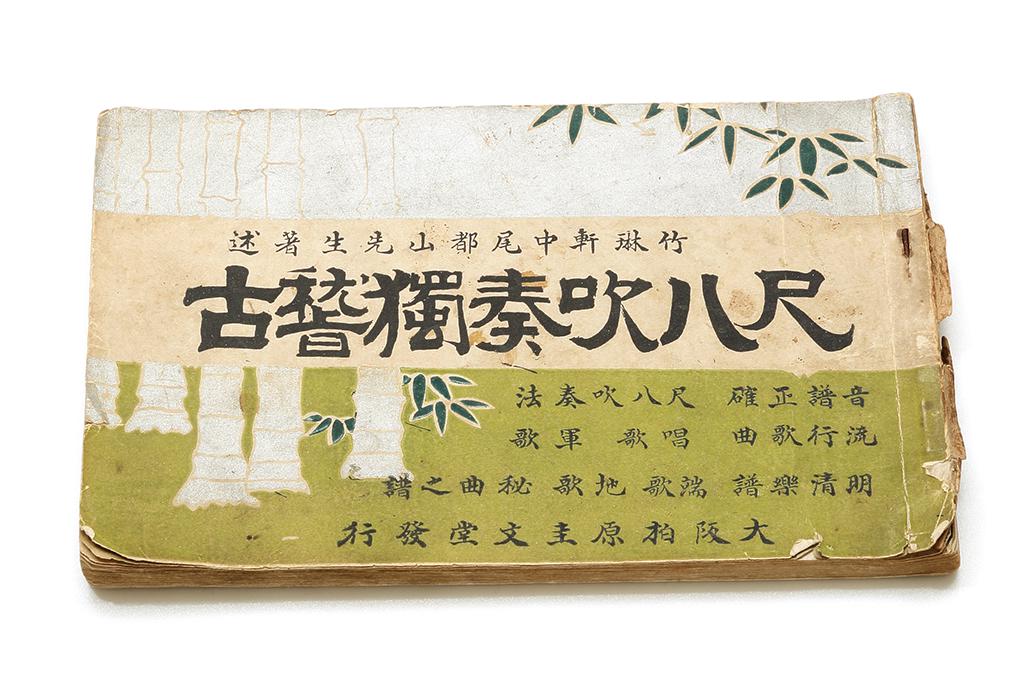 竹琳軒中尾都山先生著述
尺八吹奏獨稽古
音譜正確 尺八吹奏法
流行歌曲 唱歌 軍歌
明清樂譜 端歌 地歌 秘曲之譜
大阪柏原圭文堂發行